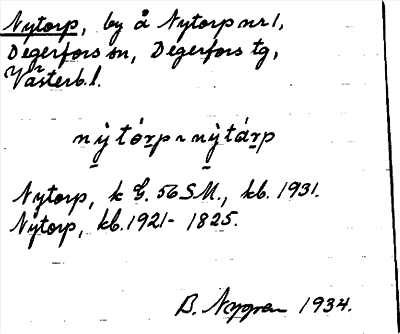 Nytorp, by å Nytorp nr 1,
Degerfors sn, Degerfors tg,
Västerb.l.
nỳtórp ~ nỳtárp
Nytorp, k G. 56 S.M., kb. 1931.
Nytorp, kb. 1921 - 1825.
B. Nygren 1934.